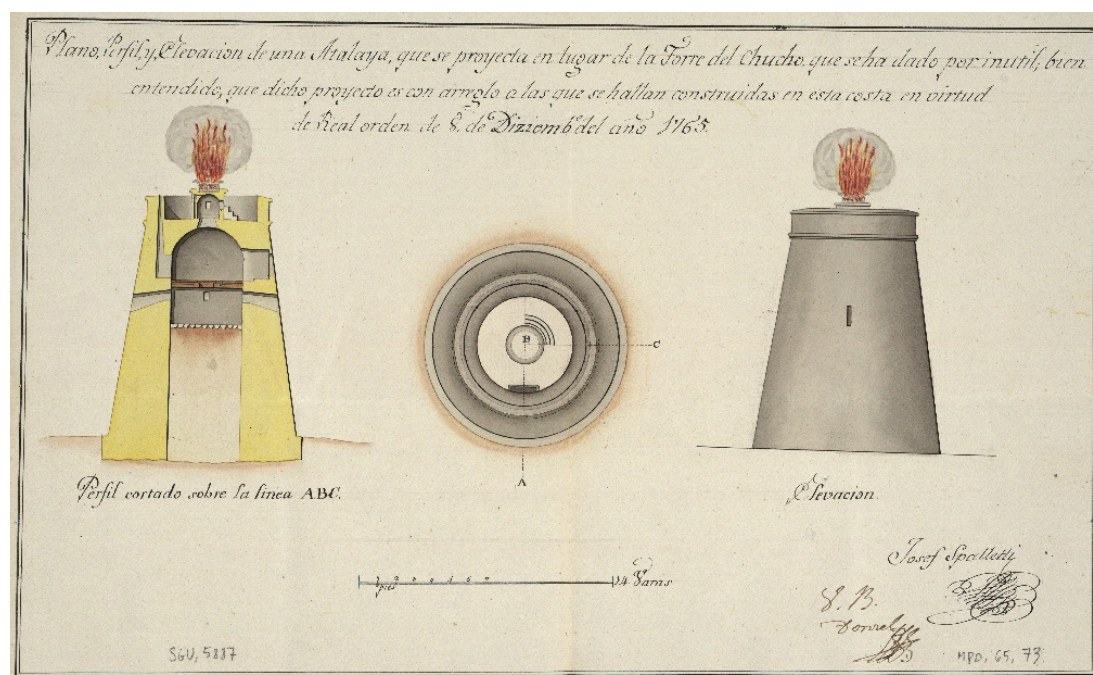 Plano, Perfil, y, Elevacion de una Atalaya, que se proyecta en lugar de la Torre del Chucho, que se ha dado por inutil; bien
entendido, que dicho proyecto es con arreglo a las que se hallan construidas en esta costa en virtud
de Real orden de 8. de Diziembe. del año 1765.
B
C
A
Perfil cortado sobre la linea ABC.
Elevacion.
Josef Spalletti
pies
14 Varas
V. B.
SGU, 5887
MPD, 65, 73.